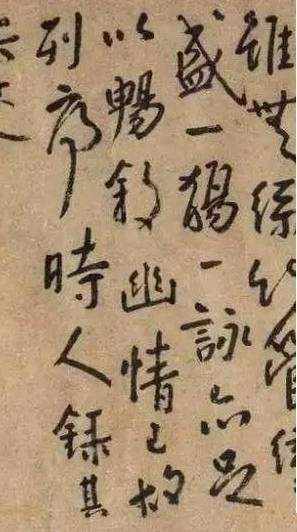 雖無絲竹管絃
盛一觴一詠亦足
以暢敘幽情已故
列序時人錄其